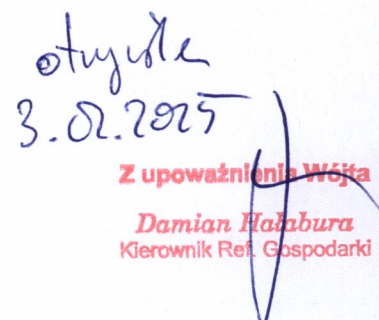 otrzymałem
3.02.2025
Z upoważnienia Wójta
Damian Hałabura
Kierownik Ref. Gospodarki